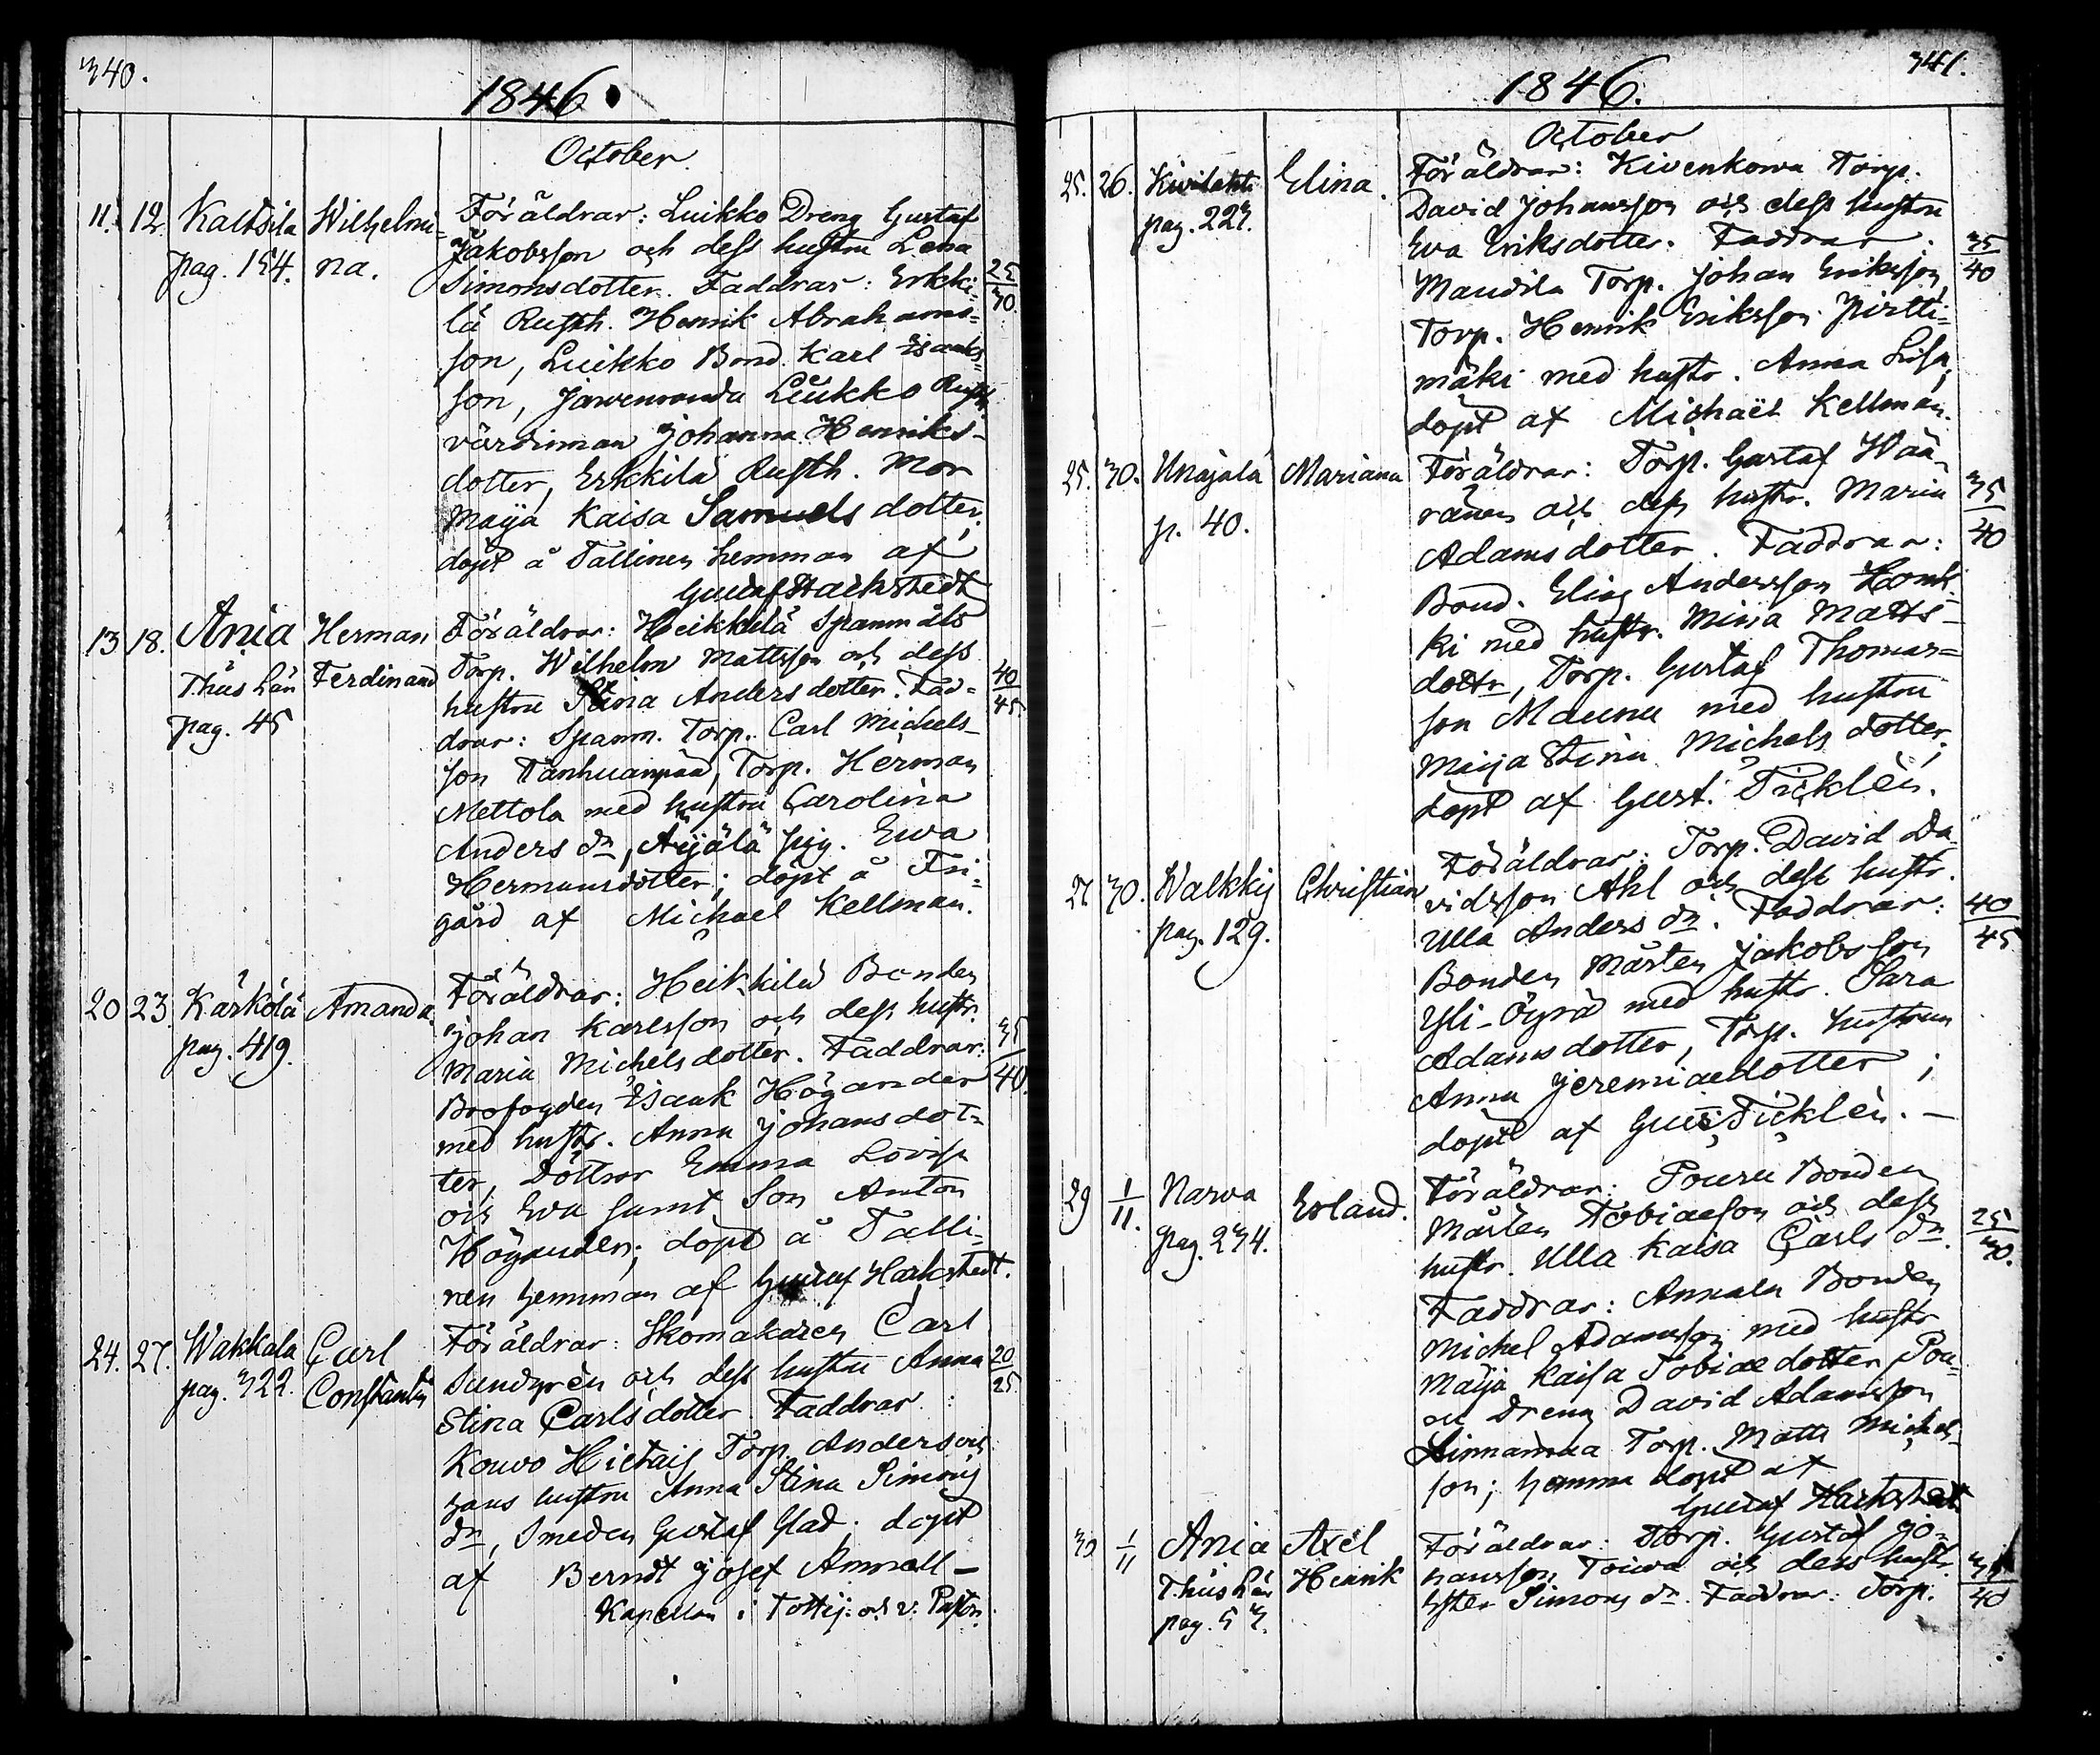 340.
1846.
October
11. 12. Kaltsila Wilhelmi= Föräldrar: Luikko Dreng Gustaf
pag. 154. na. Jakobsson och dess hustru Lena
Simonsdotter. Faddrar: Erkki= 25/30.
lä Rusth. Henrik Abrahams=
son, Luikko Bond. Karl Isaaks
son, Järvenranda Luikko Rusth.
värdinnan Johanna Henriks-
dotter, Erkkilä Rusth. Mor
Maija Kaisa Samuels dotter;
döpt å Tallinen hemman af
Gustaf Harkstedt
13 18. Ania Herman Föräldrar: Heikkilä Spannmåls
Thus Län Ferdinand Torp. Wilhelm Mattsson och dess 40/45
pag. 45 hustru Stina Andersdotter. Fad=
drar: Spanm. Torp. Carl Michels-
son Tanhuanpää, Torp. Herman
Mettola med hustru Carolina
Anders dr, Äijälä pig. Ewa
Hermansdotter; döpt å Fri=
gård af Michael Kellman.
20 23. Kärkölä Amanda. Föräldrar: Heikkilä Bonden
pag. 419. Johan Karlsson och dess hustr.
Maria Michelsdotter. Faddrar: 35/40.
Brofogden Isaak Högander
med hustr. Anna Johansdot=
ter, Döttrar Emma Lovisa
och Eva samt Son Anton
Högander; döpt å Talli=
nen hemman af Gustaf Harkstedt.
24. 27. Wakkala Carl Föräldrar: Skomakaren Carl
pag. 322. Constantin Sundgrén och dess hustru Anna 20/25
Stina Carlsdotter. Faddrar:
Kouvo Hietais Torp. Anders och
hans hustru Anna Stina Simons
dr, Smeden Gustaf Glad; döpt
af Berndt Josef Amnell –
Kapellan i Tottij. och v. Pastor.
341.
1846.
October
25. 26. Kivilahti Elina. Föräldrar: Kivenkorva Torp.
pag. 227. David Johansson och dess hustru
Eva Eriksdotter. Faddrar: 35/40
Maudila Torp. Johan Eriksson,
Torp. Henrik Eriksson Pirtti=
mäki med hustr. Anna Lisa;
döpt af Michaël Kellman.
25. 30. Unajala Mariana Föräldrar: Torp. Gustaf Wää-
p. 40. ränen och dess hustr. Maria 35/40
Adamsdotter. Faddrar:
Bond. Elias Andersson Honk-
ki med hustr. Mina Matts-
dottr, Torp. Gustaf Thomas=
son Maunu med hustru
Maija Stina Michels dotter;
döpt af Gust. Ticklén.
27 30. Walkkis Christian Föräldrar: Torp. David Da
pag. 129. vidsson Ahl och dess hustr.
Ulla Anders dr. Faddrar: 40/45
Bonden Mårten Jakobsson
Yli-Öyrä med hustr. Sara
Adamsdotter, Torp. hustrun
Anna Jeremiaedotter;
döpt af Gust. Ticklén. –
29 1/11. Narva Erland. Föräldrar: Pouru Bonden
pag. 234. Mårten Tobiaeson och dess
hustr. Ulla Kaisa Carls dr. 25/30.
Faddrar: Annala Bonden
Michel Adamsson med hustr
Maija Kaisa Tobiae dotter, Pou-
ru Dreng David Adamsson
Linnamaa Torp. Matts Michels-
son; hemma döpt af
Gustaf Harkstedt
30 1/11 Ania Axel Föräldrar: Torp. Gustaf Jo-
Thus Län Henrik hansson Toiva och dess hustr.
pag. 53. Ester Simons dr. Faddrar: Torp. 40